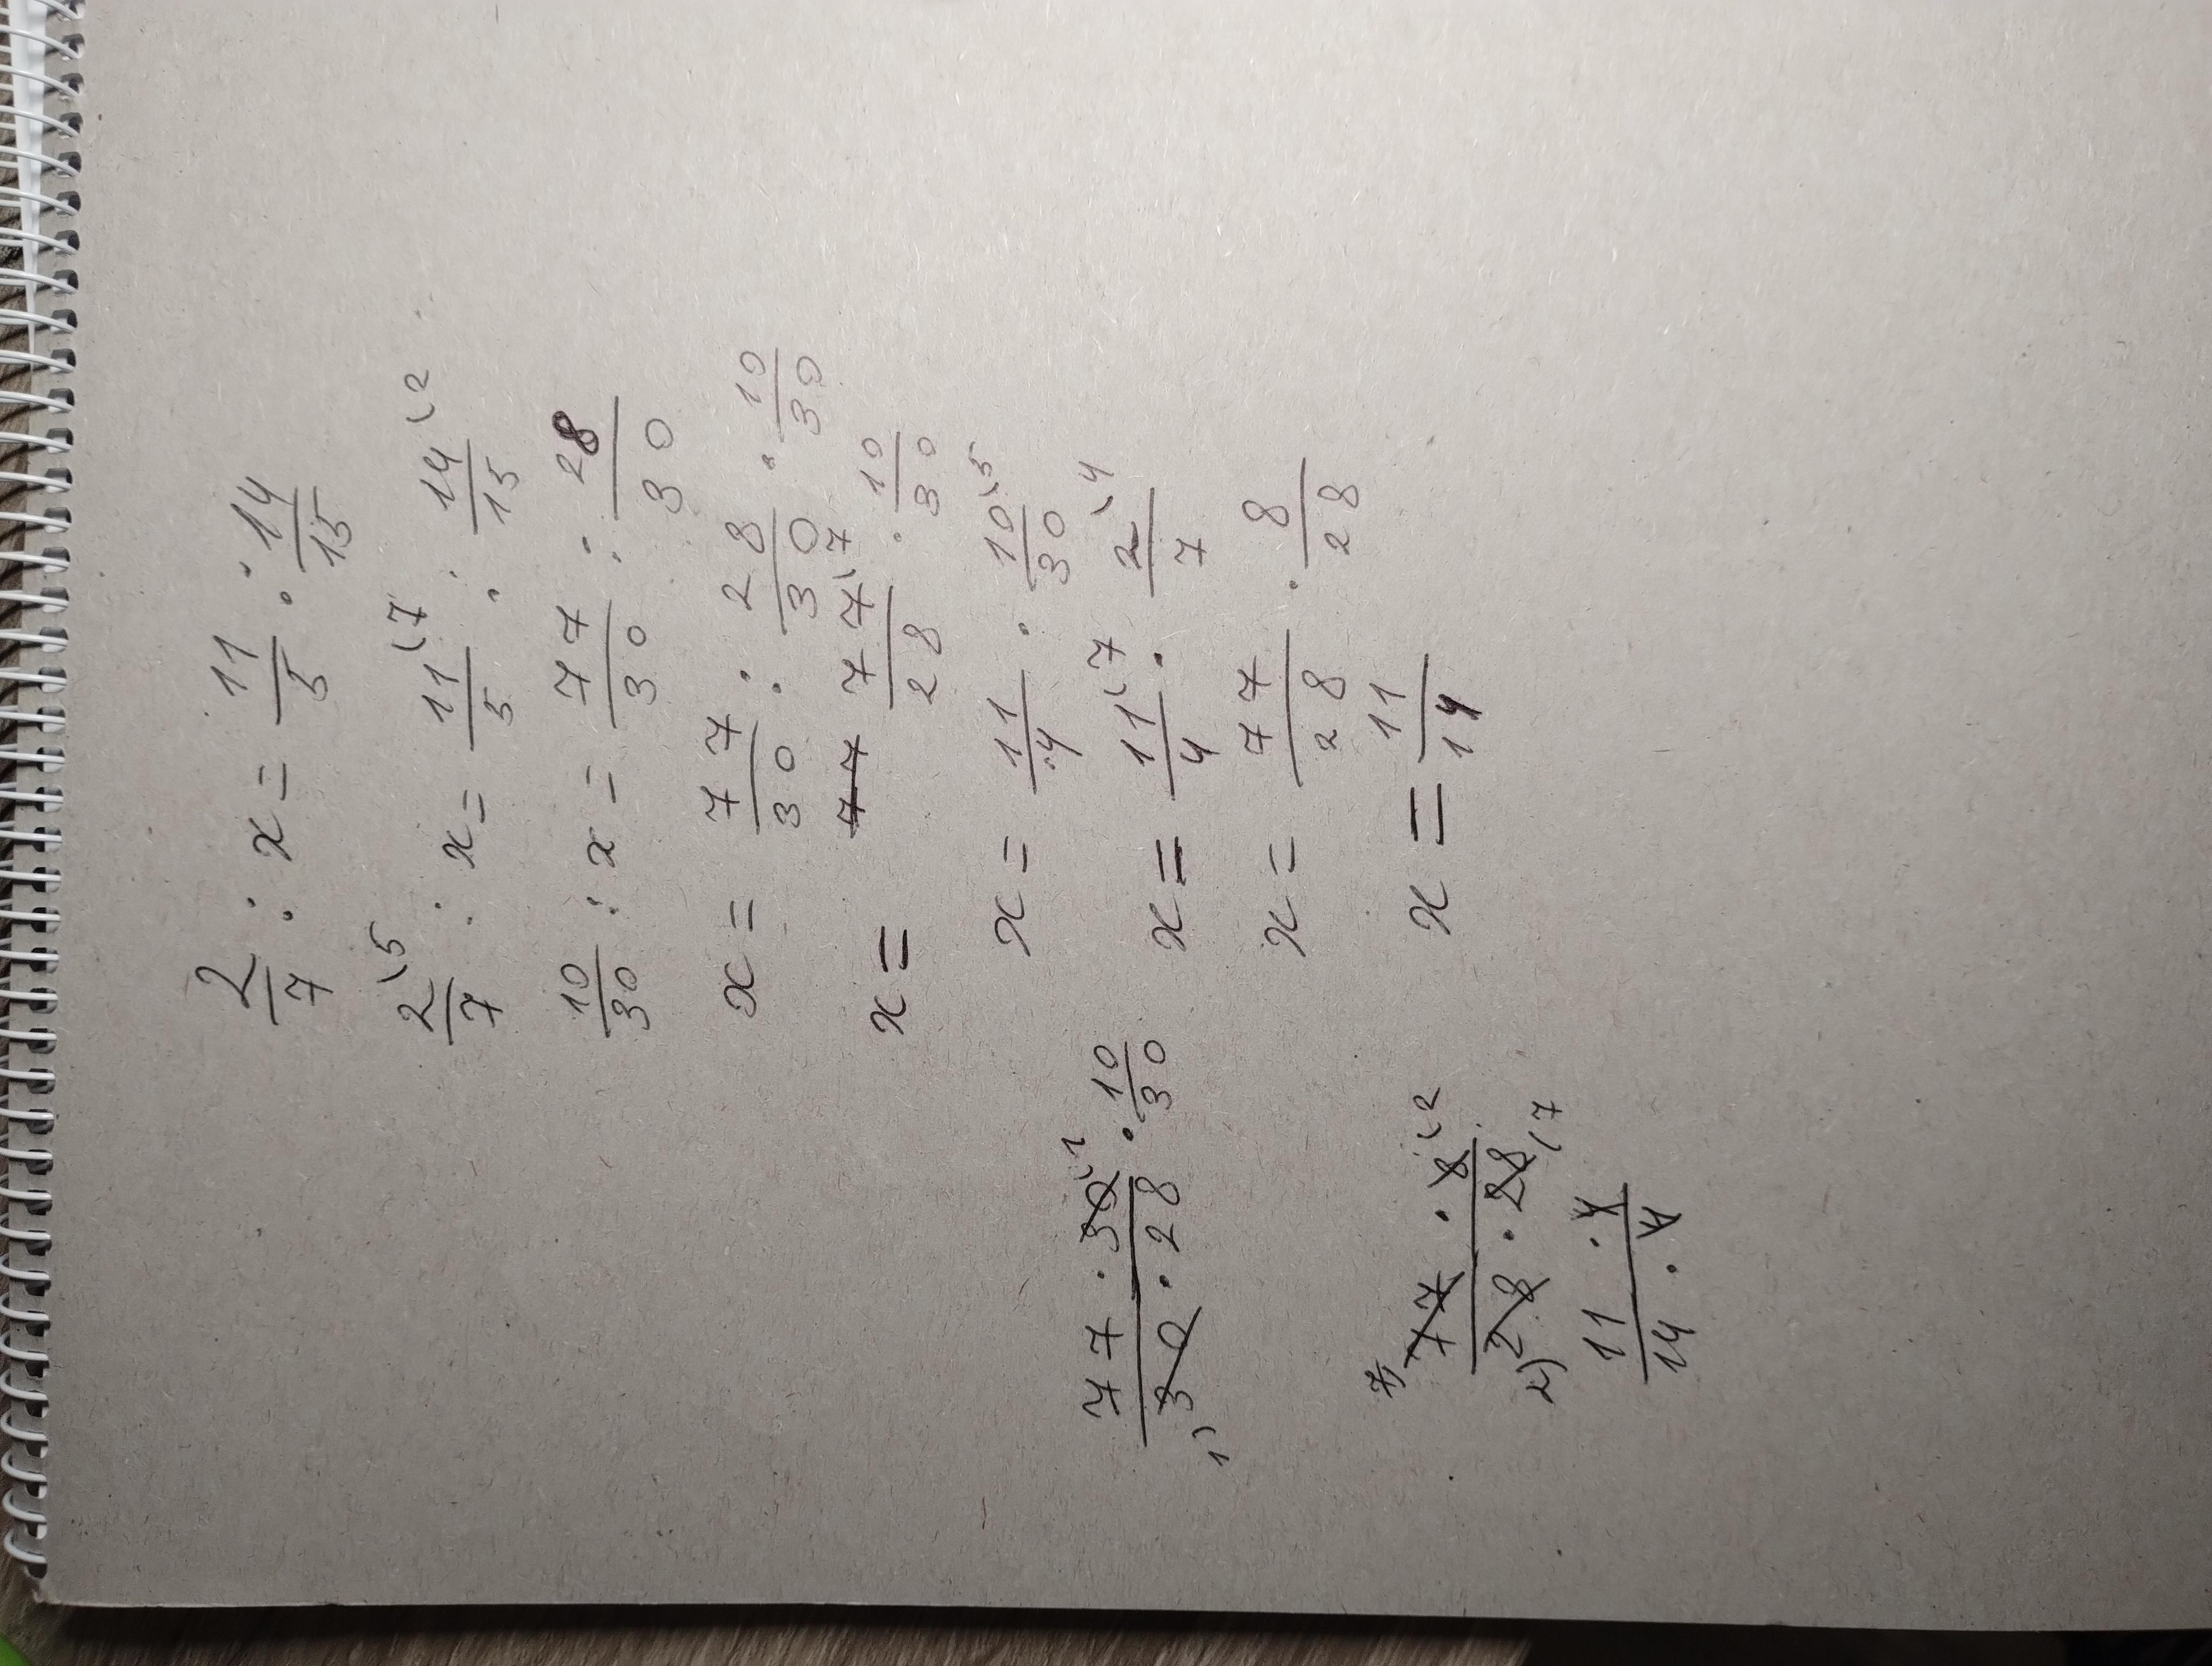 2/7 : x = 11/5 : 14/15
2/7 (5 : x = 11/5 (7 : 14/15 (2
10/30 : x = 77/30 : 28/30
x = 77/30 : 28/30 · 10/30
x = 77 77/28 (7 · 10/30
x = 11/4 · 10/30 (5
x = 11/4 (7 · 2/7 (4
x = 77/28 · 8/28
x = 11/14
77 · 30 (1 / 1) 30 · 28 · 10/30
7) 77 · 8 (2 / 2) 28 · 28 (7
11 · 4 / 14 · 4